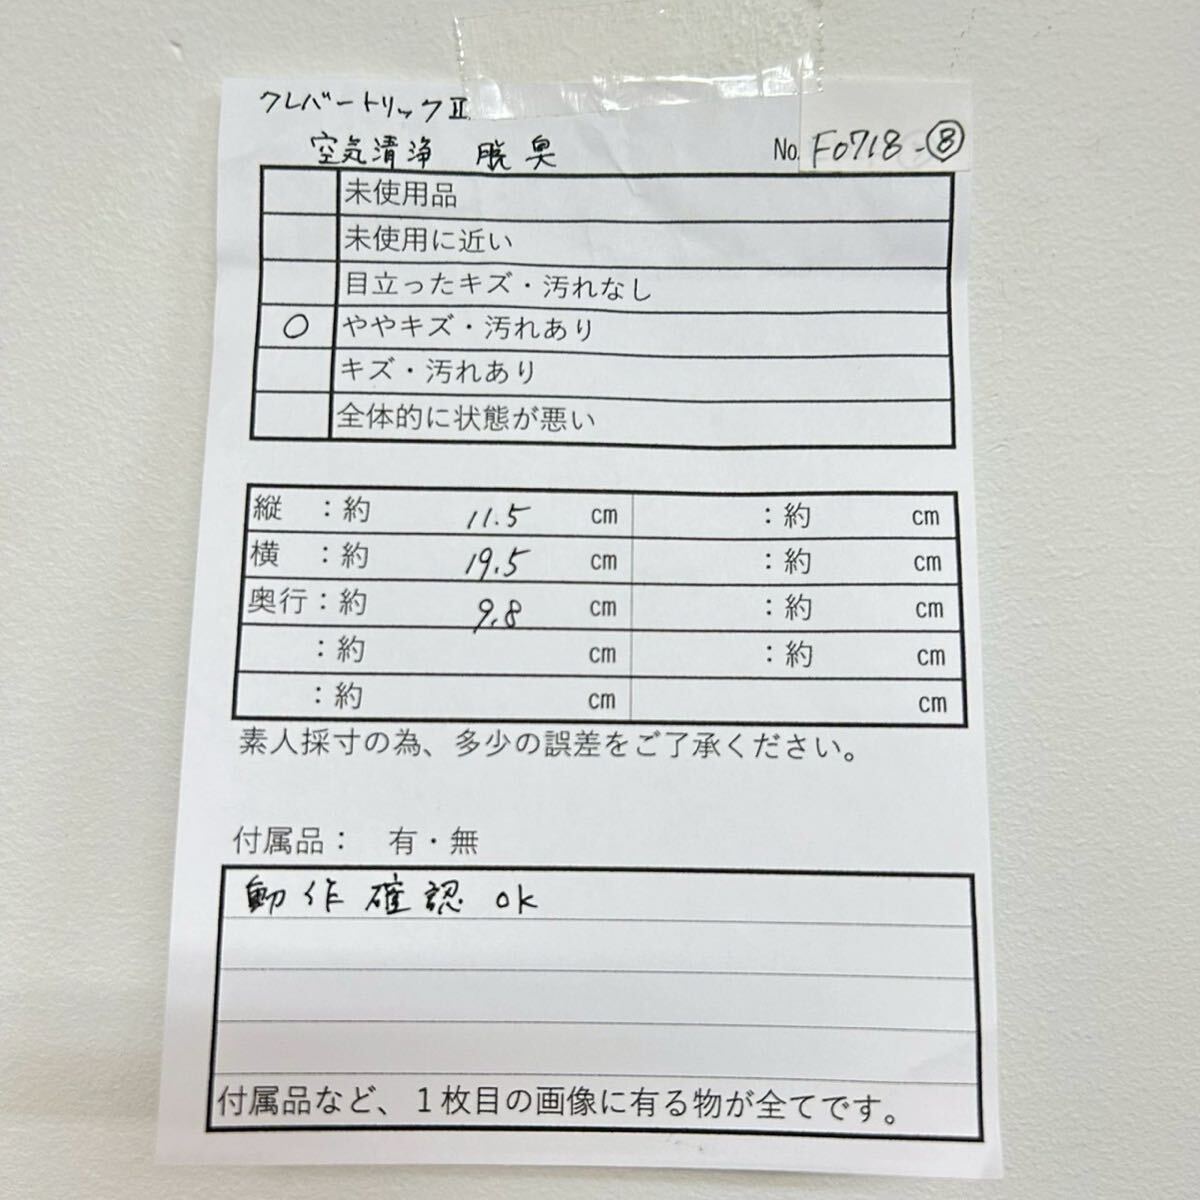 クレバートリックⅡ
空気清浄 脱臭 No. F0718-⑧
未使用品
未使用に近い
目立ったキズ・汚れなし
○ ややキズ・汚れあり
キズ・汚れあり
全体的に状態が悪い
縦 ：約 11.5 cm ：約 cm
横 ：約 19.5 cm ：約 cm
奥行：約 9.8 cm ：約 cm
：約 cm ：約 cm
：約 cm cm
素人採寸の為、多少の誤差をご了承ください。
付属品： 有・無
動作確認 ok
付属品など、１枚目の画像に有る物が全てです。